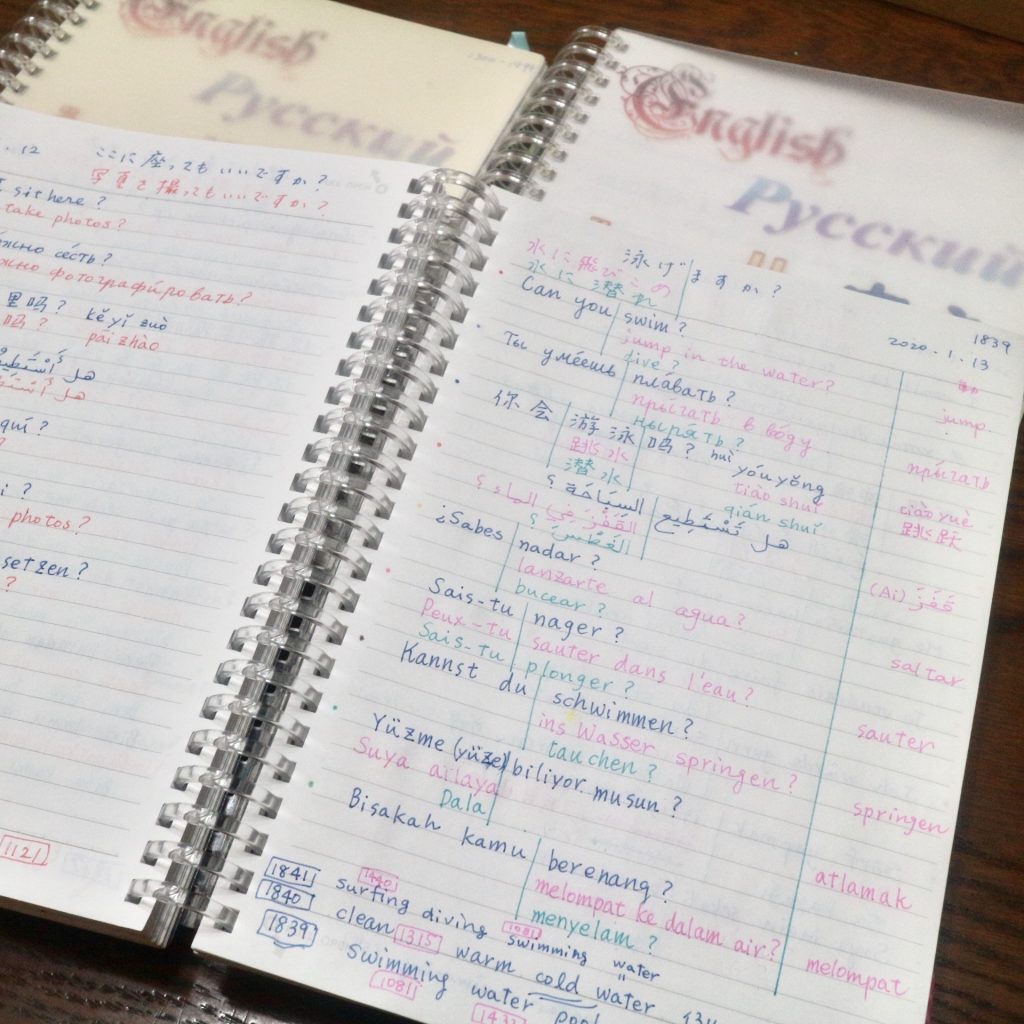 English
Русский
. 12
ここに座ってもいいですか?
写真を撮ってもいいですか?
sit here?
take photos?
сесть?
фотографи́ровать?
里吗? kě yǐ zuò
吗? pāi zhào
هل أَسْتَطِيع
هل
quí?
i?
photos?
setzen?
?
1121
English
Русский
泳げますか?
水に飛びこめ
水に潜れ
1839
2020.1.13
Can you swim?
jump in the water?
dive?
jump
Ты умéешь плáвать?
прыгать в вóду
ныря́ть?
прыгать
你会游泳吗? huì yóu yǒng
跳水 tiào shuǐ
潜水 qián shuǐ
tiào yuè
跳跃
هل تَسْتَطِيع السِّبَاحَة؟
القَفْزَ فِي الماء؟
الغَطْسَ؟
(Ai) قَفَزَ
¿Sabes nadar?
lanzarte al agua?
bucear?
saltar
Sais-tu nager?
Peux-tu sauter dans l'eau?
Sais-tu plonger?
sauter
Kannst du schwimmen?
ins Wasser springen?
tauchen?
springen
Yüzme (yüze) biliyor musun?
Suya
Dala
atlamak
Bisakah kamu berenang?
melompat ke dalam air?
menyelam?
melompat
1841 1440 surfing diving 1081 swimming water
1840 clean 1315 warm cold water
1839 swimming water pool
1081